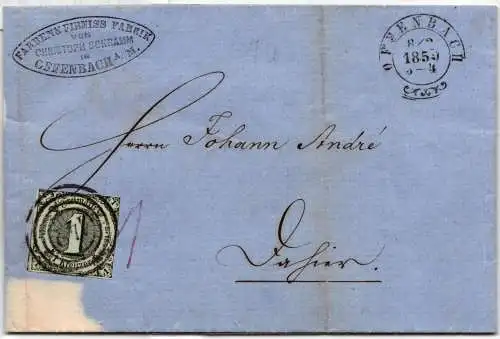 FARBEN & FIRNISS FABRIK
VON
CHRISTOPH SCHRAMM
IN
OFFENBACH A/M.
OFFENBACH
1850
Herrn Johann André
1
Dahier.